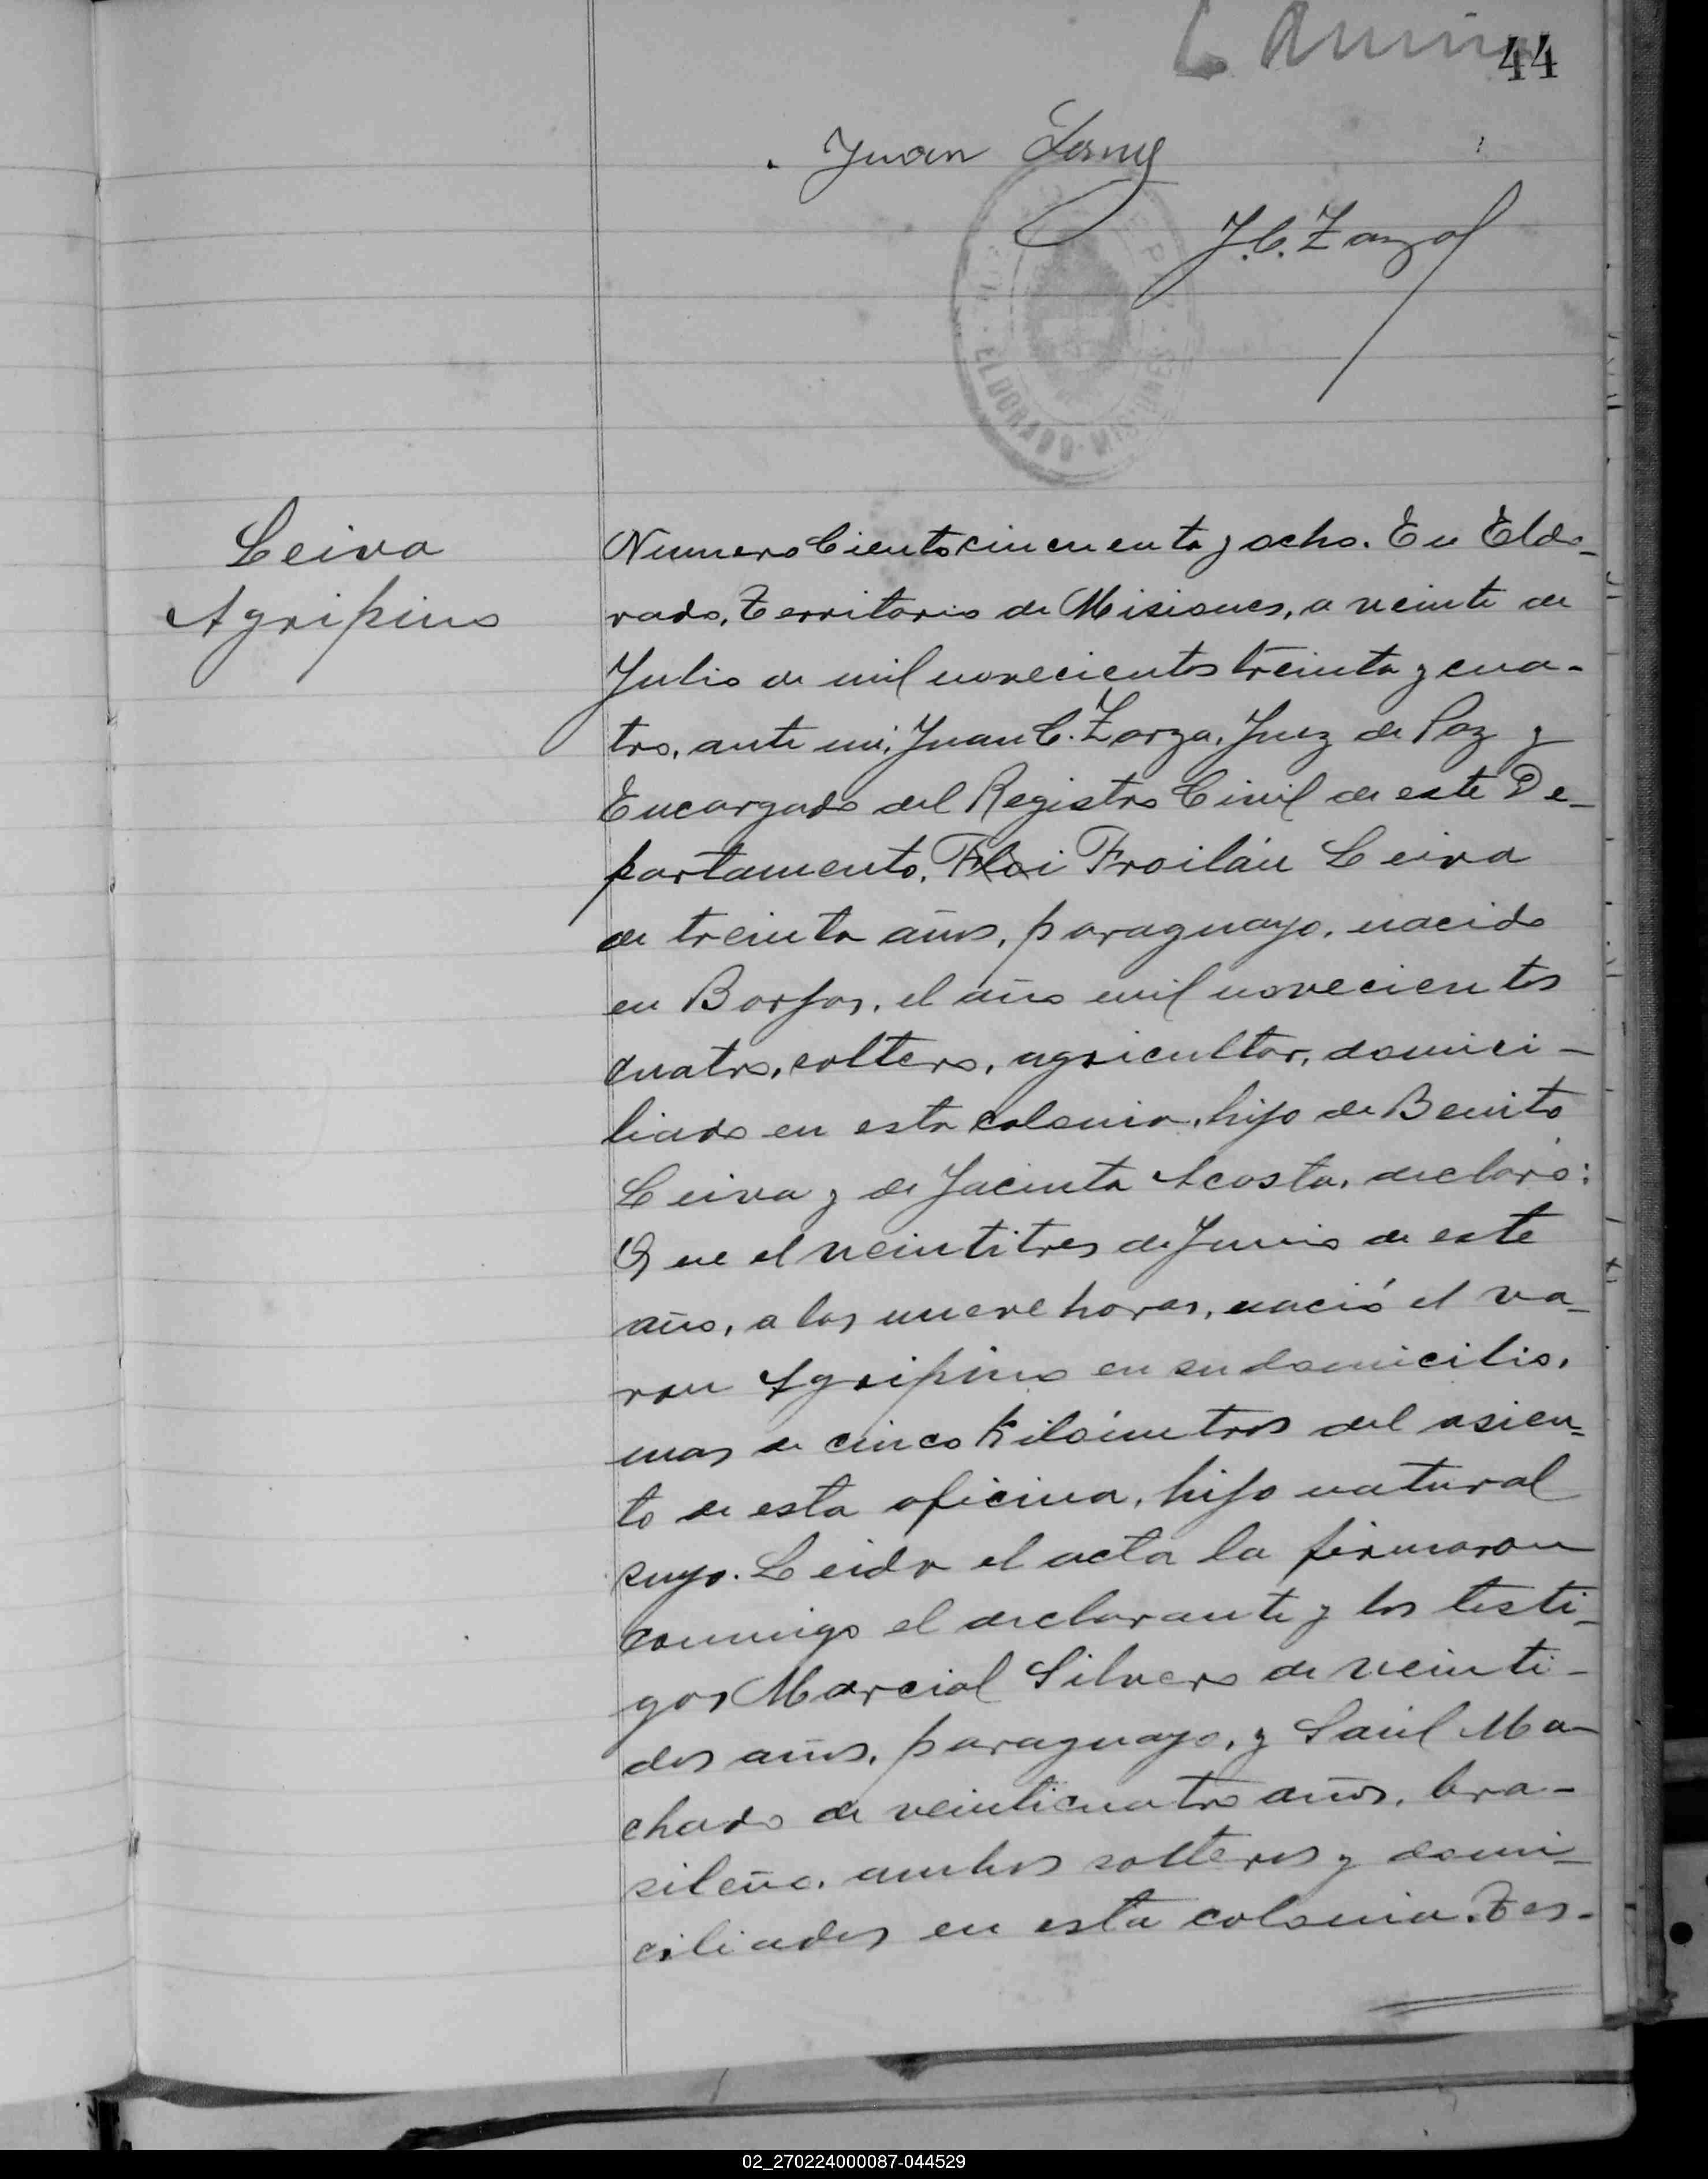 44
Juan
J. C. Zarza
ELDORADO · MISIONES
Leiva
Agripino
Numero Ciento cincuenta y ocho. En Eldo-
rado, Territorio de Misiones, a veinte de
Julio de mil novecientos treinta y cua-
tro, ante mi, Juan C. Zarza, Juez de Paz y
Encargado del Registro Civil de este De-
partamento, Froilán Leiva
de treinta años, paraguayo, nacido
en Borjas, el año mil novecientos
cuatro, soltero, agricultor, domici-
liado en esta colonia, hijo de Benito
Leiva y de Jacinta Acosta, declaró:
Que el veintitres de Junio de este
año, a las nueve horas, nació el va-
ron Agripino en su domicilio,
mas de cinco kilómetros del asien-
to de esta oficina, hijo natural
suyo. Leida el acta la firmaron
conmigo el declarante y los testi-
gos Marcial Silvero de veinti-
dos años, paraguayo, y Saúl Ma-
chado de veinticuatro años, bra-
sileño, ambos solteros y domi-
ciliados en esta colonia. Tes-
02_270224000087-044529